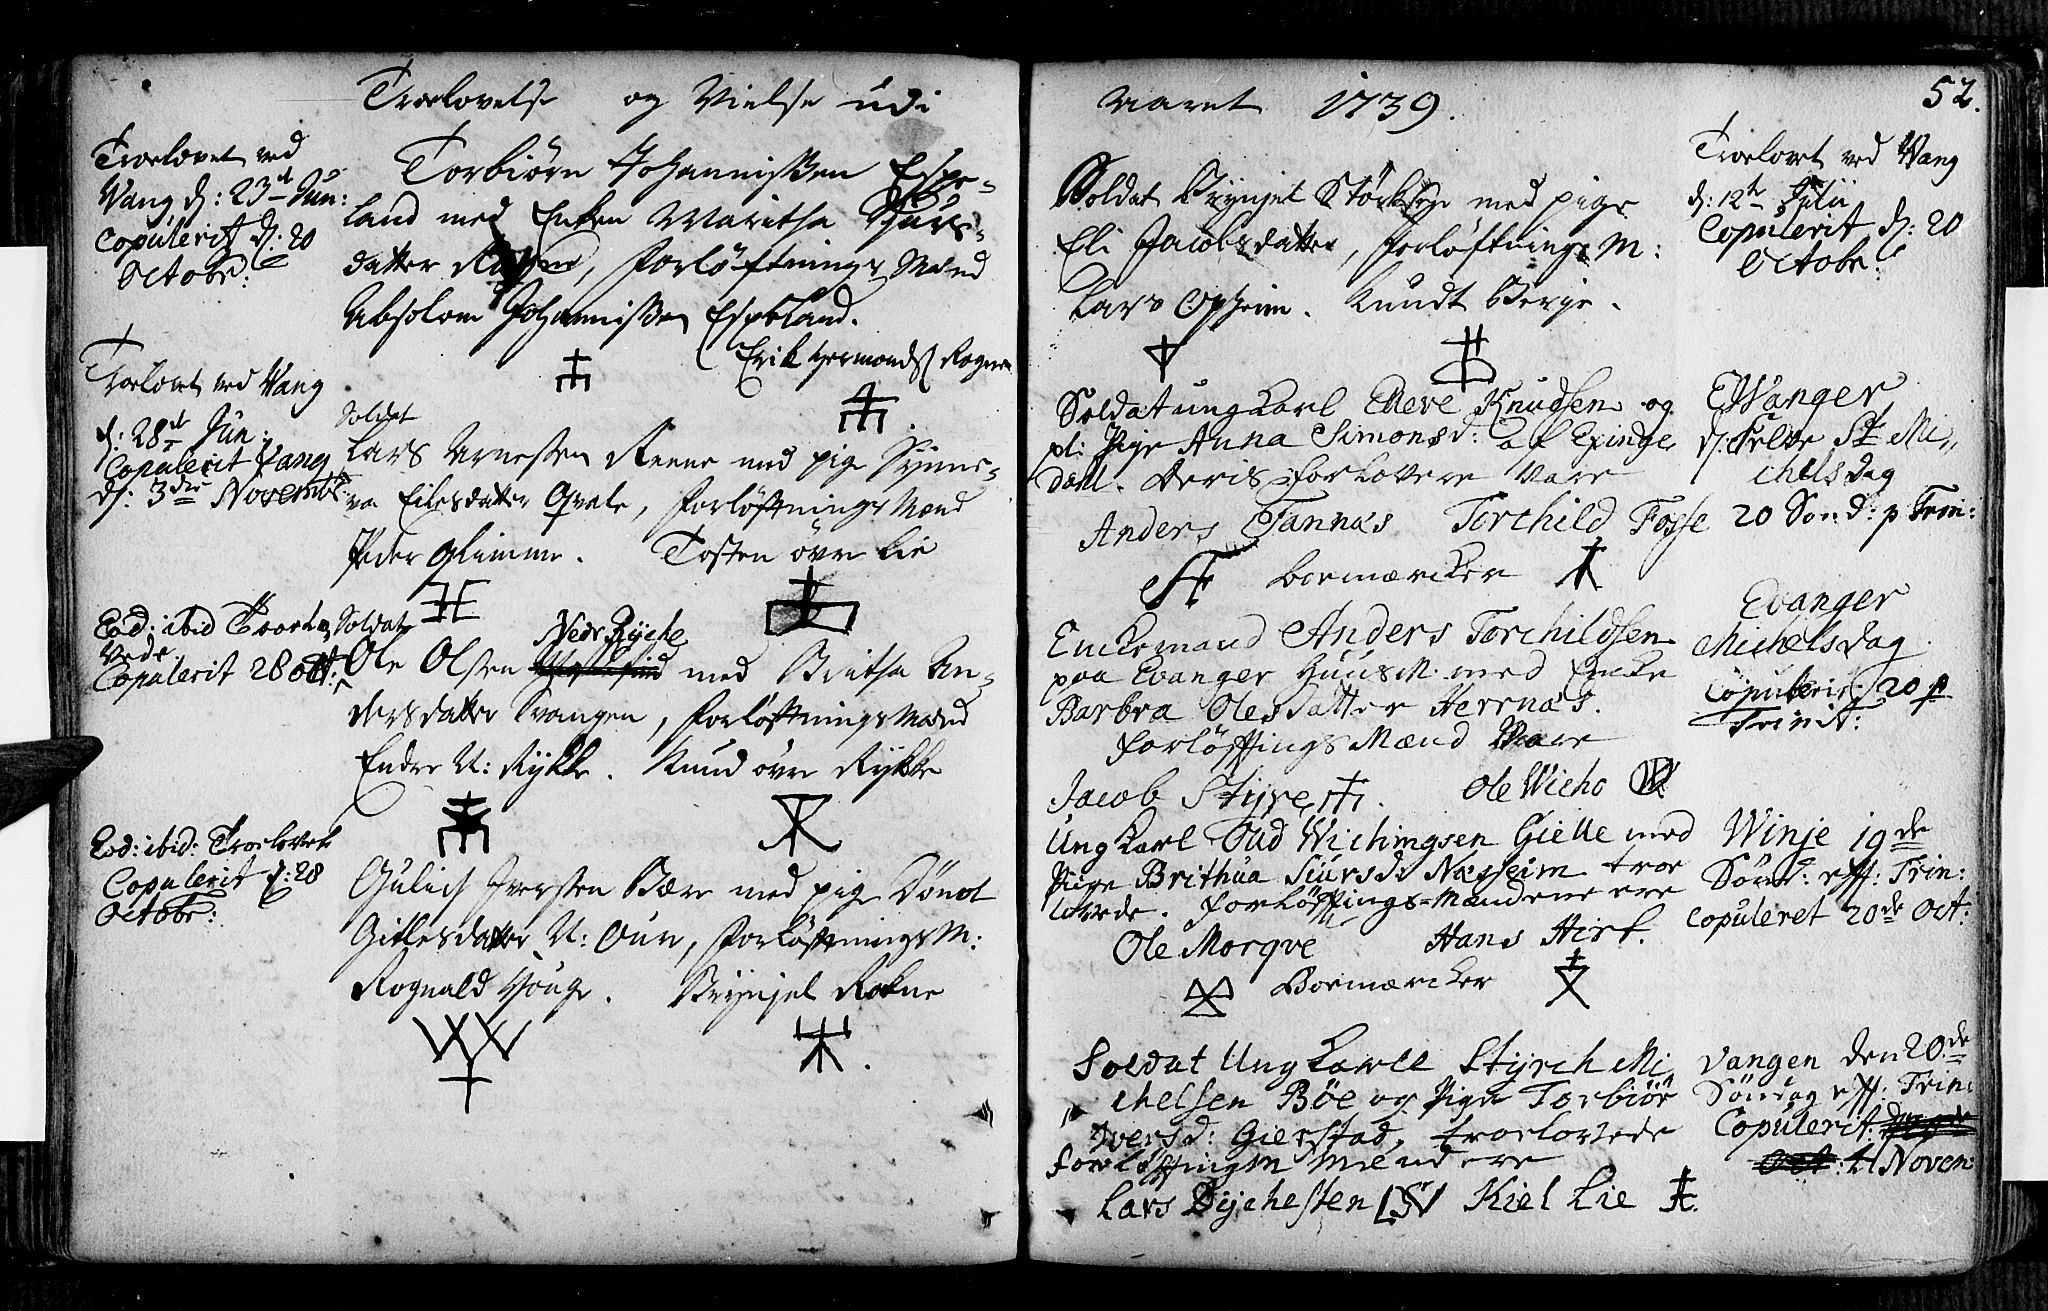 Troelovelse og Vielse udi
Troelovet ved
Wang d: 23de Jun:
Copulerit d: 20
Octobr:
Torbiörn Johannissen Espe-
land med Enken Maritha Siurs-
datter, Forlöftnings Mænd
Absolom Johannissen Espeland.
Erik Germonds Rogne
Troelovet ved Wang
d: 28de Jun:
Copulerit Vang
d: 3die Novembr:
Soldat
Lars Arnesten Reene med pige Synne-
va Eilesdatter Qvale, Forlöftnings Mænd
Peder Glimme. Tosten övre Lie
Eod: ibid Troelo
vede
Copulerit 28 oct:
Soldat
Nedr Rÿche
Ole Olsen med Britha An-
dersdatter Svangen, Forlöftnings Mænd
Endre N: Rÿkke. Knud övre Rÿkke
Eod: ibid: Troelovet
Copulerit d: 28
Octobr:
Gulich Iversten Bære med pige Dönot
Gitlesdatter N: Oun, Forlöftnings M:
Rognald Houge. Brÿnjel Rokne
Aaret 1739.
52.
Soldat Brÿnjel med pige
Eli Jacobsdatter, Forlöftnings M:
Lars Opheim. Knudt Berge.
Troelovet ved Wang
d: 12te Julii
Copulerit d: 20
Octobr:
Soldat ung karl Elleve Knudsen og
pl: Pige Anna Simonsd: af Exinge
dahl. Deris forlovere vare
Anders Fannas Torchild Fosse
boemærcker
EWanger
St Mi,,
chelsdag
20 Sond: p Trin:
Enckemand Anders Torchildsen
paa Evanger Huus M. med Encke
Barbra Olesdatter Hernas.
Forlöfftings Mænd Vare
Jacob Stÿve. Ole Wicho
Evanger
Michelsdag
Copulerit: 20 p
Trinit:
Ung karl Odd Wichingsen Gielle med
Pige Brithua Siursd: Næsheim troe
lovede. Forlöfftings-Mændene ere
Ole Morqve Hans Hirt.
Boemærcker
Winje 19de
Sönd: eff: Trin:
Copuleret 20de Oct:
Soldat Ung karll Stÿrch Mi
chelsen Böe og Pige Torbiör
Iversd: Gierstad. troelovede
Forlöfftings mænd ere
Lars Dÿchesten Kiel Lie
Vangen den 20de
Söndag eff: Trin:
Copulerit:
4 Novem: